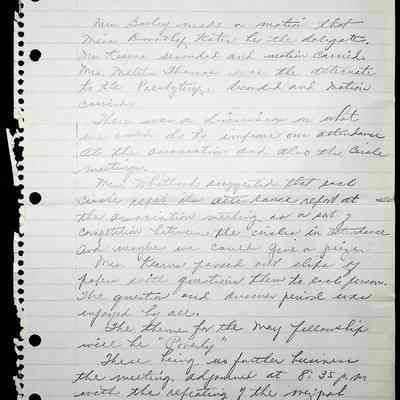 Mrs. Bailey made a motion that
Miss Dorothy be the delegate.
Mrs. Kearns seconded and motion carried.
Mrs. Thomas was the alternate
to the Presbytery. Second and Motion
carried.
There was a discussion on what
we could do to improve our attendance
at the association and also the Circle
meetings.
Mrs. Whitlock suggested that each
Circle repot its attendance report at
the association meeting as a sort of
competition between the circles in attendance
and maybe we could give a prize.
Mrs. Kearns passed out slips of
paper with questions them to each person.
The question and answer period was
enjoyed by all.
The theme for the May fellowship
will be "
There being no further business
the meeting adjourned at 8:35 p.m
with the repeating of the